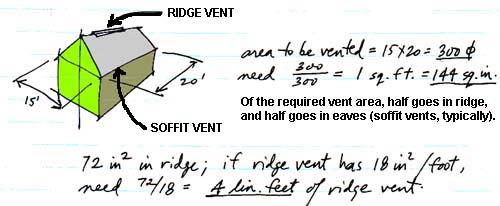 RIDGE VENT
15'
20'
SOFFIT VENT
area to be vented = 15x20 = 300 ϕ
need 300/300 = 1 sq. ft. = 144 sq. in.
Of the required vent area, half goes in ridge,
and half goes in eaves (soffit vents, typically).
72 in² in ridge; if ridge vent has 18 in²/foot,
need 72/18 = 4 lin. feet of ridge vent.